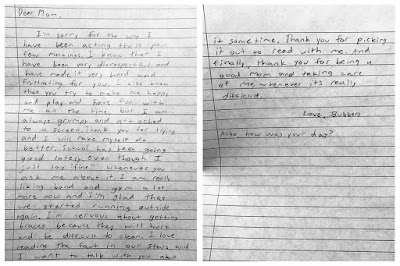 Dear Mom,
I'm sorry for the way I
have been acting these past
few mornings. I know that I
have been very disrespectful and
have made it very hard and
frustrating for you. I know
that you try to make me happy
and play and have fun with
me all the time, but I am
always grumpy and attached
to a screen. Thank you for trying
and I will make myself do
better. School has been going
good lately even though I
just say "fine" whenever you
ask me about it. I am really
liking band and gym a lot
more now and I'm glad that
we started running outside
again. I'm nervous about getting
braces because they will hurt
and be difficult to clean. I love
reading the fault in our stars and
I want to talk with you about
it sometime. Thank you for picking
it out to read with me. and
finally, thank you for being a
good Mom and taking care
of me whenever it's really
difficult.
Love, Bubbers
Also how was your day?